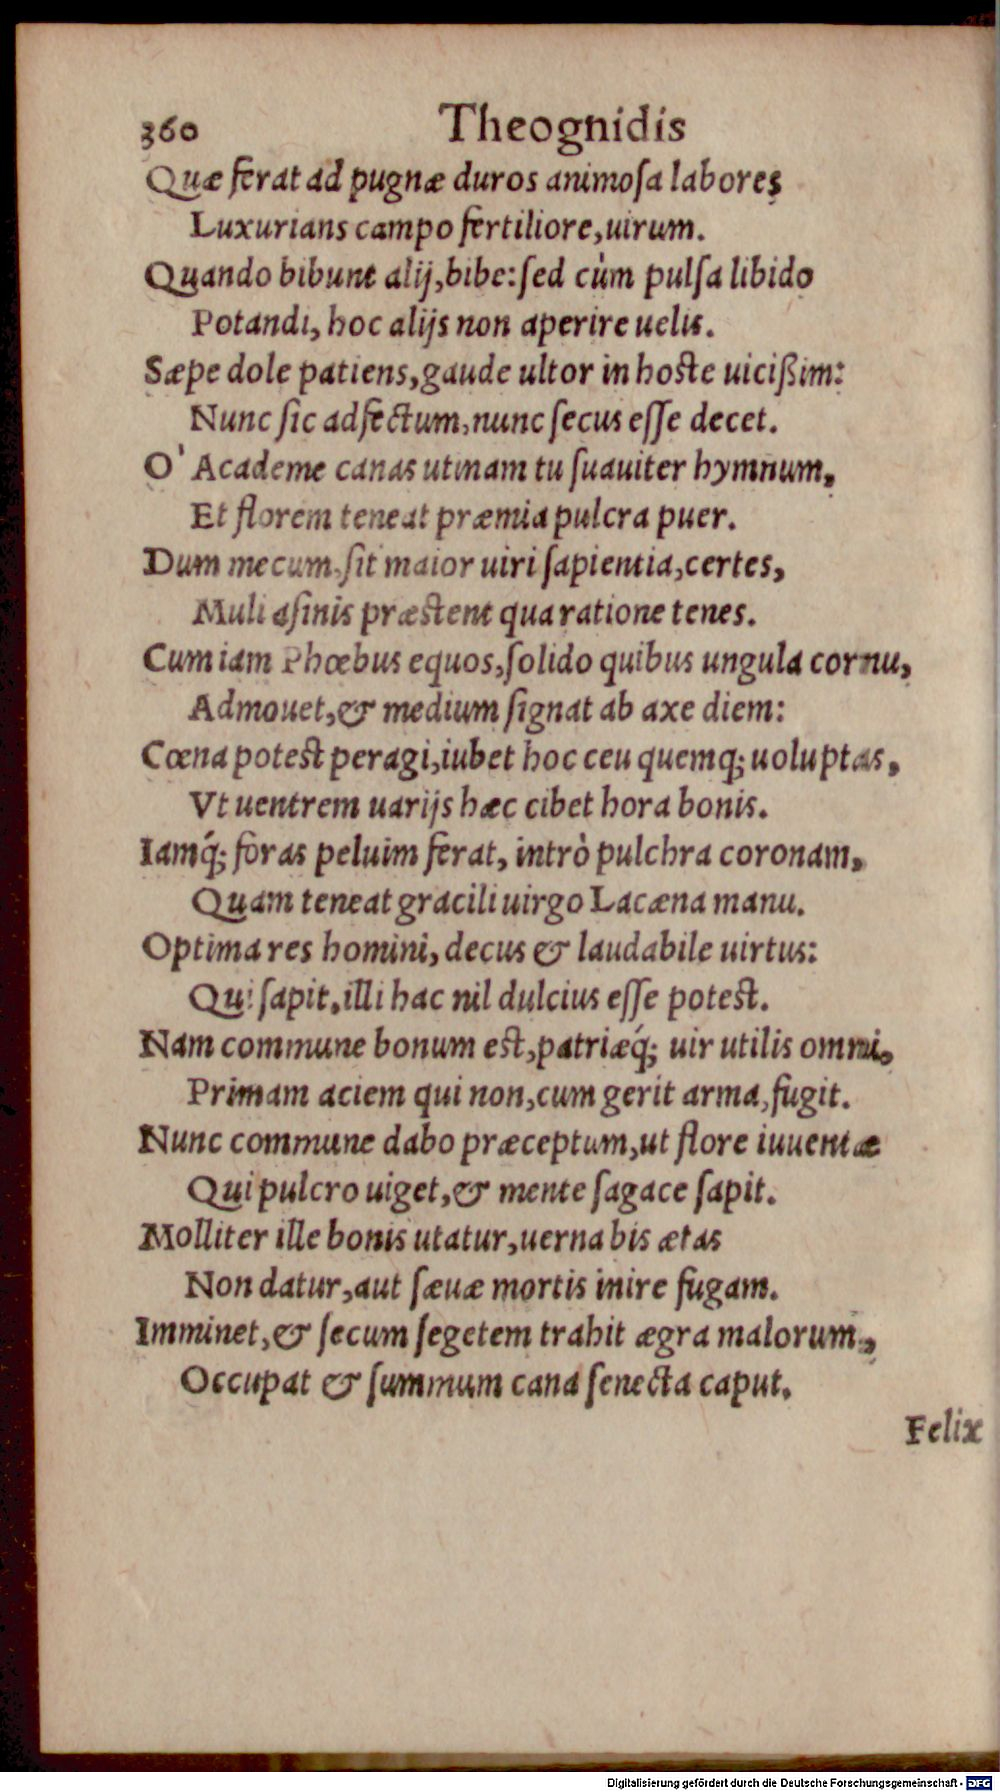 360 Theognidis
Quæ ferat ad pugnæ duros animoſa labores
Luxurians campo fertiliore, uirum.
Quando bibunt alij, bibe: ſed cùm pulſa libido
Potandi, hoc alijs non aperire uelis.
Sæpe dole patiens, gaude ultor in hoſte uicißim:
Nunc ſic adfectum, nunc ſecus eſſe decet.
O' Academe canas utinam tu ſuauiter hymnum,
Et florem teneat præmia pulcra puer.
Dum mecum, ſit maior uiri ſapientia, certes,
Muli aſinis præſtent qua ratione tenes.
Cum iam Phœbus equos, ſolido quibus ungula cornu,
Admouet, & medium ſignat ab axe diem:
Cœna poteſt peragi, iubet hoc ceu quemq; uoluptas,
Vt uentrem uarijs hæc cibet hora bonis.
Iamq́; foras peluim ferat, intrò pulchra coronam,
Quam teneat gracili uirgo Lacæna manu.
Optima res homini, decus & laudabile uirtus:
Qui ſapit, illi hac nil dulcius eſſe poteſt.
Nam commune bonum eſt, patriæq́; uir utilis omni,
Primam aciem qui non, cum gerit arma, fugit.
Nunc commune dabo præceptum, ut flore iuuentæ
Qui pulcro uiget, & mente ſagace ſapit.
Molliter ille bonis utatur, uerna bis ætas
Non datur, aut ſæuæ mortis inire fugam.
Imminet, & ſecum ſegetem trahit ægra malorum,
Occupat & ſummum cana ſenecta caput.
Felix
Digitalisierung gefördert durch die Deutsche Forschungsgemeinschaft - DFG